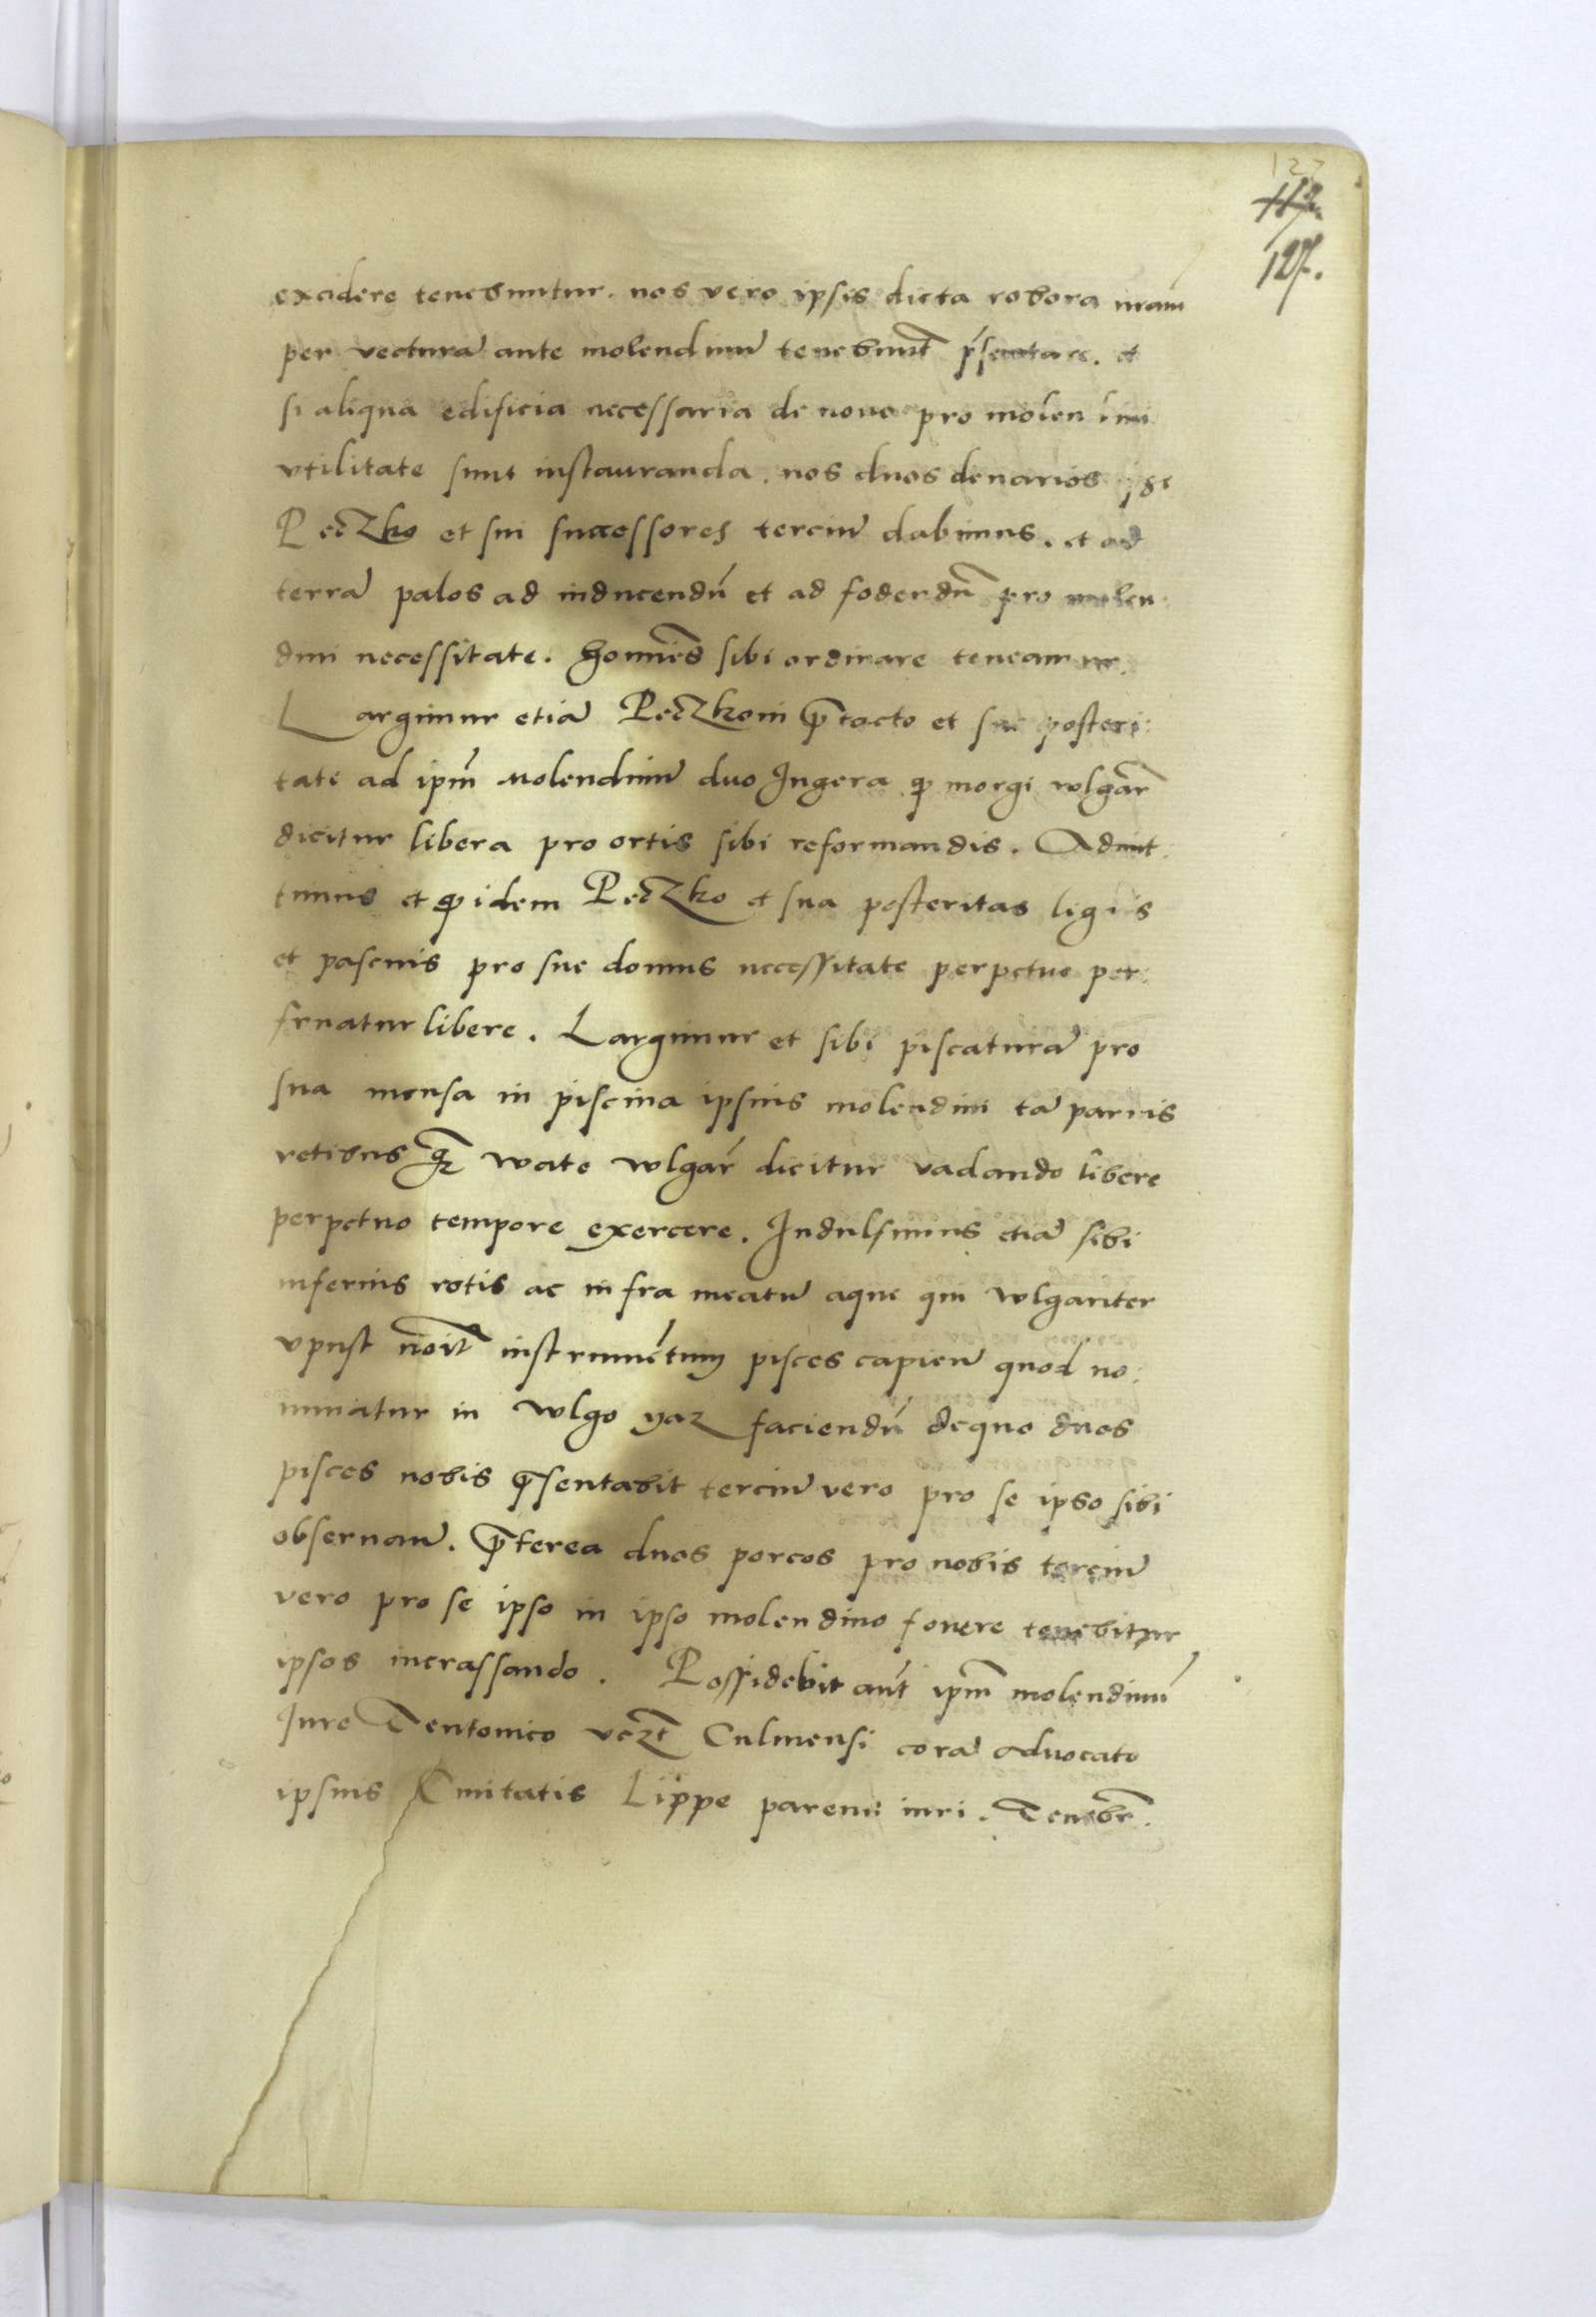 127
117.
127.
excidere tenebuntur. nos vero ipsis dicta robora nram̄
per vecturā ante molendinū tenebimꝰ p̄sentare. et
si aliqua edificia necessaria de novo pro molendini
vtilitate sunt instauranda. nos duos denarios ipse
Peczko et sui successores terciū dabimus. et ad
terrā palos ad inducendū et ad fodendū pro molen:
dini necessitate. homines sibi ordinare teneamur.
Largimur etiā Peczkoni p̄tacto et sue posteri:
tati ad ipm̄ Molendinū duo Jugera qͥ morgi wlgar̄
dicitur libera pro ortis sibi reformandis. Admit:
timus et ꝙ idem Peczko et sua posteritas lignis
et pascuis pro sue domus necessitate perpetue per:
fruatur libere. Largimur et sibi piscaturā pro
sua mensa in piscina ipsius molendini tā parvis
retibus q̄ wate wlgar̄ dicitur vadando libere
perpetuo tempore exercere. Indulsimus etiā sibi
inferius rotis ac infra meatū aque qui wlgariter
vpust noīt instrumētum pisces capien̄ quod no:
minatur in wlgo yaz faciendū de quo duos
pisces nobis p̄sentabit terciū vero pro se ipso sibi
observan̄. P̄terea duos porcos pro nobis terciū
vero pro se ipso in ipso molendino fovere tenebitur
ipsos incrassando. Possidebit aūt ipm̄ molendinū
Jure Teutonico vcz̄t Culmensi corā advocato
ipsius Civitatis Lippe paren̄ iuri. Tenebr̄.